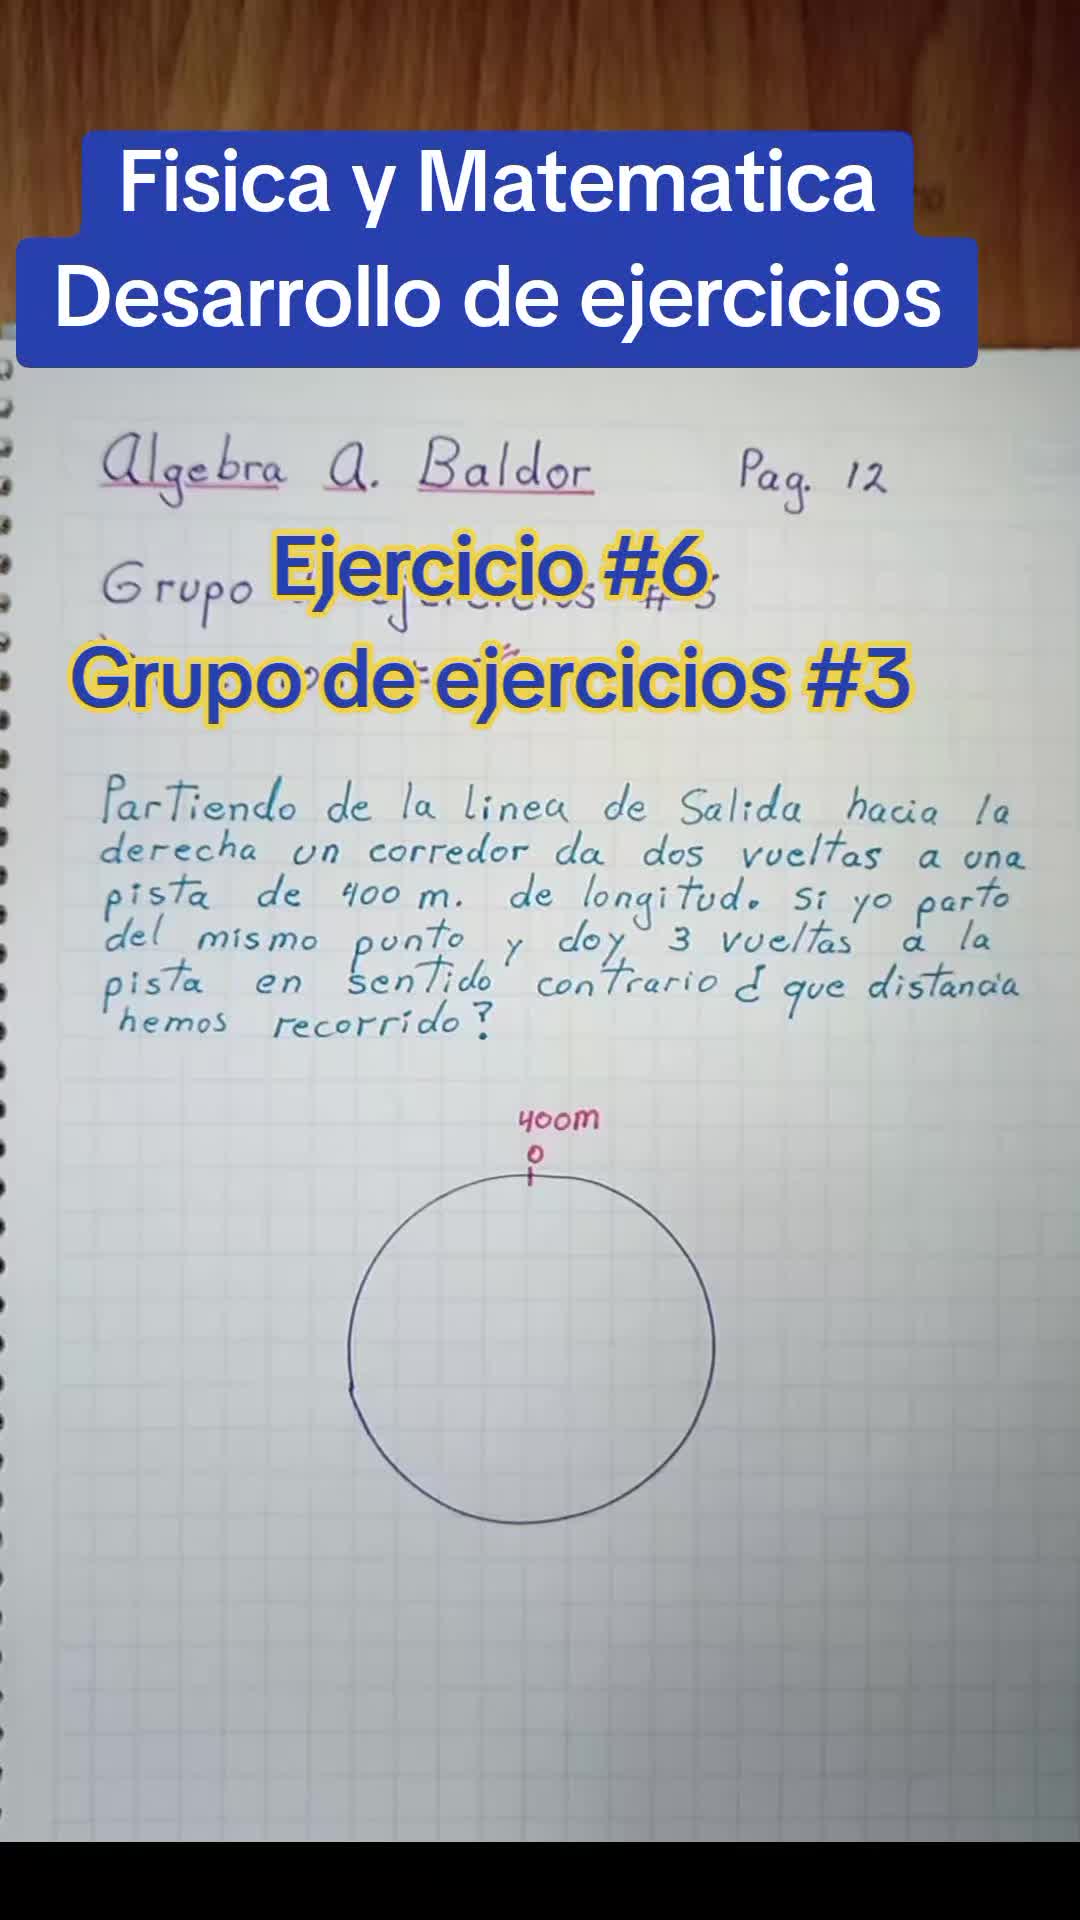 Fisica y Matematica
Desarrollo de ejercicios
Algebra A. Baldor Pag. 12
Grupo
Ejercicio #6
Grupo de ejercicios #3
ParTiendo de la linea de Salida hacia la
derecha un corredor da dos vueltas a una
pista de 400 m. de longitud. Si yo parto
del mismo punto y doy 3 vueltas a la
pista en senTido conTrario ¿ que distancia
hemos recorrido?
400m
0